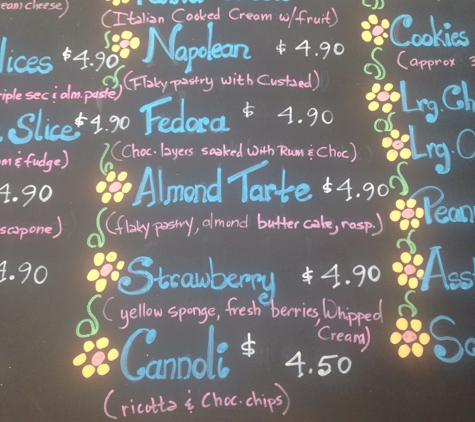 eam cheese)
lices $4.90
iple sec & alm. paste)
. Slice $4.90
m & fudge)
4.90
scapone)
4.90
(Italian Cooked Cream w/fruit)
Napolean $ 4.90
(Flaky pastry with Custard)
Fedora $ 4.90
(Choc. layers soaked with Rum & Choc)
Almond Tarte $4.90
(flaky pastry, almond butter cake, rasp.)
Strawberry $ 4.90
(yellow sponge, fresh berries, Whipped
Cream)
Cannoli $ 4.50
(ricotta & Choc. chips)
Cookies
(approx
Lrg. Ch
Lrg. C
Pean
Ass